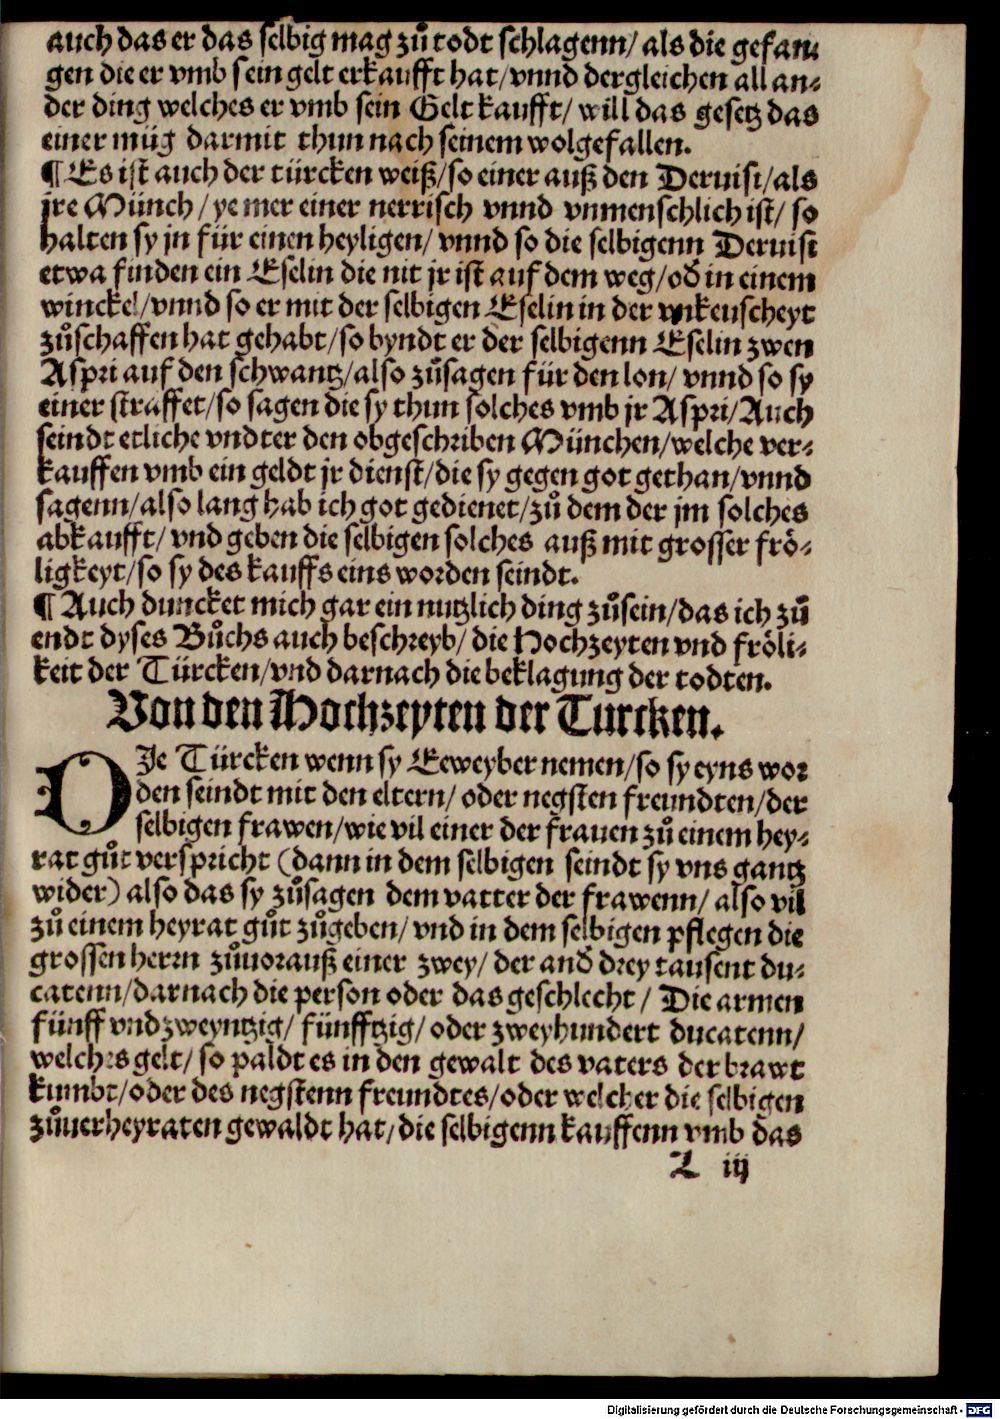 auch das er das selbig mag zů todt schlagenn/ als die gefan-
gen die er vmb sein gelt erkaufft hat/ vnnd dergleichen all an-
der ding welches er vmb sein Gelt kaufft/ will das gesetz das
einer müg darmit thun nach seinem wolgefallen.
¶ Es ist auch der türcken weiß/ so einer auß den Deruisi/ als
jre Münch/ ye mer einer nerrisch vnnd vnmenschlich ist/ so
halten sy jn für einen heyligen/ vnnd so die selbigenn Deruisi
etwa finden ein Eselin die nit jr ist auf dem weg/ oď in einem
winckel/ vnnd so er mit der selbigen Eselin in der vnkeuscheyt
zůschaffen hat gehabt/ so byndt er der selbigenn Eselin zwen
Aspri auf den schwantz/ also zůsagen für den lon/ vnnd so sy
einer straffet/ so sagen die sy thun solches vmb jr Aspri/ Auch
seindt etliche vndter den obgeschriben München/ welche ver-
kauffen vmb ein geldt jr dienst/ die sy gegen got gethan/ vnnd
sagenn/ also lang hab ich got gedienet/ zů dem der jm solches
abkaufft/ vnd geben die selbigen solches auß mit grosser frö-
ligkeyt/ so sy des kauffs eins worden seindt.
¶ Auch duncket mich gar ein nutzlich ding zůsein/ das ich zů
endt dyses Bůchs auch beschreyb/ die Hochzeyten vnd fröli-
keit der Türcken/ vnd darnach die beklagung der todten.
Von den Hochzeyten der Turcken.
DIe Türcken wenn sy Eeweyber nemen/ so sy eyns wor
den seindt mit den eltern/ oder negsten freundten/ der
selbigen frawen/ wie vil einer der frauen zů einem hey-
rat gůt verspricht (dann in dem selbigen seindt sy vns gantz
wider) also das sy zůsagen dem vatter der frawenn/ also vil
zů einem heyrat gůt zůgeben/ vnd in dem selbigen pflegen die
grossen herrn zůuorauß einer zwey/ der anď drey tausent du-
catenn/ darnach die person oder das geschlecht/ Die armen
fünff vnd zweyntzig/ fünfftzig/ oder zweyhundert ducatenn/
welches gelt/ so paldt es in den gewalt des vaters der brawt
kumbt/ oder des negstenn freundtes/ oder welcher die selbigen
zůuerheyraten gewaldt hat/ die selbigenn kauffenn vmb das
L iij
Digitalisierung gefördert durch die Deutsche Forschungsgemeinschaft - DFG